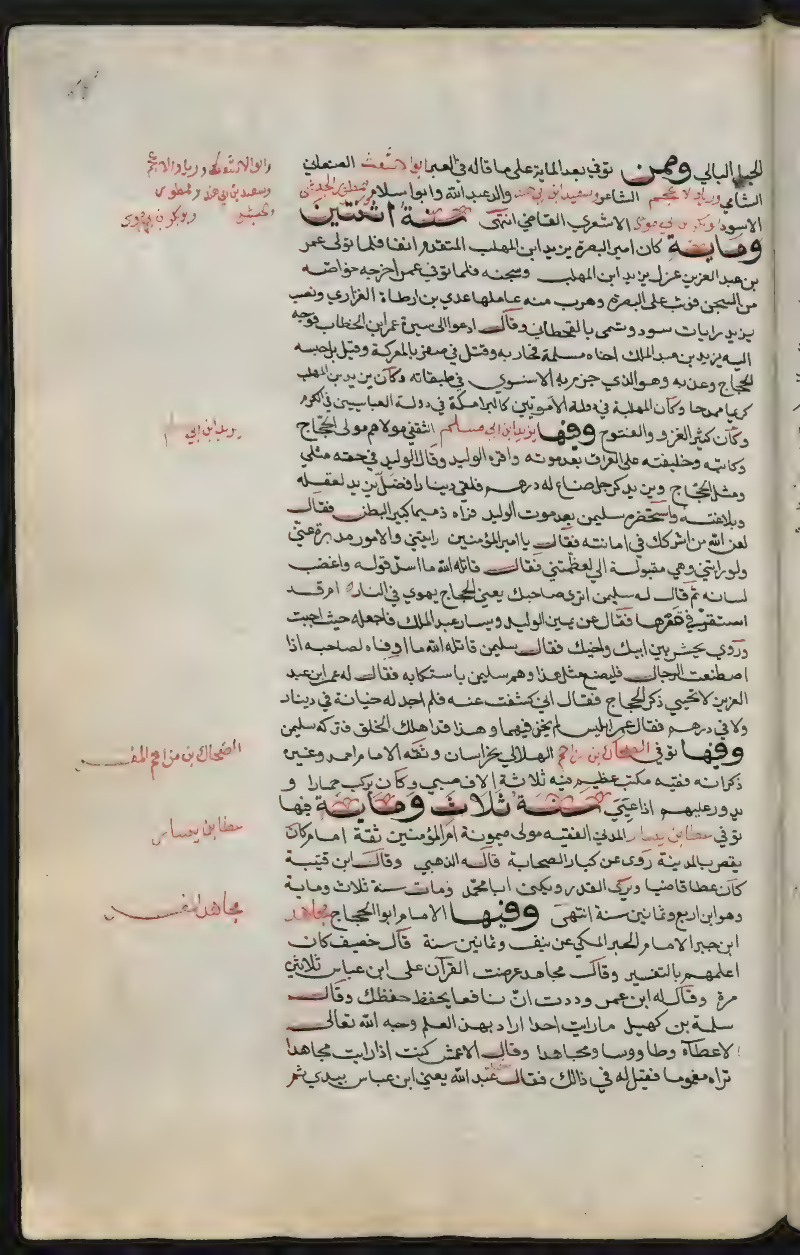 الجبل البالي وممن توفي بعد الماية على ما قاله في العبر ابوا الاشعث الصنعاني
الشامي وزياد الاعجم الشاعر وسعيد ابن ابي هند والد عبد الله وابوا سلام الحبشي
الاسود وبكر بن ابي موسى الاشعري القاضي انتهى سنة اثنتين
وماية كان امير البصرة يزيد ابن المهلب المتقدم انفا فلما تولى عمر
بن عبد العزيز عزل يزيد ابن المهلب وسجنه فلما توفي عمر اخرجه خواصه
من السجن فوثب على البصرة وهرب منه عاملها عدي بن ارطاة الفزاري ونصب
يزيد رايات سود وتسمى بالقحطاني وقال ادعوا الى سيرة عمر ابن الخطاب فوجه
اليه يزيد بن عبد الملك اخاه مسلمة فحاربه وقتل في صفر بالمعركة وقيل بل حبسه
الحجاج وعذبه وهو الذي جزم به الاسنوي في طبقاته وكان يزيد بن المهلب
كريما ممدحا وكان المهلبة في دولة الامويين كالبرامكة في دولة العباسيين في الكرم
وكان كثير الغزو والفتوح وفيها يزيد ابن ابي مسلم الثقفي مولاهم مولى الحجاج
وكاتبه وخليفته على العراق بعد موته واقره الوليد وقال الوليد في حقه مثلي
ومثل الحجاج ويزيد كرجل ضاع له درهم فلقي دينارا فضل يزيد لعقله
وبلاغته واستحضره سليمن بعد موت الوليد فراه ذميما كبير البطن فقال
لعن الله من اشركك في امانته فقال يا امير المؤمنين رايتني والامور مدبرة عني
ولو رايتني وهي مقبولة الي لعظمتني فقال قاتله الله ما اسد قوله واغضب
لسانه ثم قال له سليمن اترى صاحبك يعني الحجاج يهوي في النار ام قد
استقر في قعرها فقال عن يمين الوليد ويسار عبد الملك فاجعله حيث احببت
وروي يحشر بين ابيك واخيك فقال سليمن قاتله الله ما اوفاه لصاحبه اذا
اصطنعت الرجال فليصنع مثل هذا وهم سليمن باستكتابه فقال له عمر ابن عبد
العزيز لا تحيي ذكر الحجاج فقال اني كشفت عنه فلم اجد له خيانة في دينار
ولا في درهم فقال عمر ابليس لم يخن فيهما وهذا قد اهلك الخلق فتركه سليمن
وفيها توفي الضحاك ابن مزاحم الهلالي بخراسان وثقه الامام احمد وغيره
ذكر انه فقيه مكتب عظيم فيه ثلاثة الاف صبي وكان يركب حمارا و
يدور عليهم اذا عيي سنة ثلاث وماية فيها
توفي عطا بن يسار المدني الفقيه مولى ميمونة ام المؤمنين ثقة امام كان
يقص بالمدينة روى عن كبار الصحابة قاله الذهبي وقال ابن قتيبة
كان عطا قاضيا ويرى القدر ويكنى ابا محمد ومات سنة ثلاث وماية
وهو ابن اربع وثمانين سنة انتهى وفيها الامام ابوا الحجاج مجاهد
ابن جبر الامام الحبر المكي عن نيف وثمانين سنة قال خصيف كان
اعلمهم بالتفسير وقال مجاهد عرضت القرآن على ابن عباس ثلاثين
مرة وقال له ابن عمر وددت ان نافعا يحفظ حفظك وقال
سلمة بن كهيل ما رايت احدا اراد بهذا العلم وجه الله تعالى
الا عطاء وطاووسا ومجاهدا وقال الاعمش كنت اذا رايت مجاهدا
تراه مغموما فقيل له في ذالك فقال عبد الله يعني ابن عباس بيدي ثم
وابوا الاشعث وزياد الاعجم
وسعيد بن ابي هند
الحبشي وبكر بن ابي موسى
يزيد ابن ابي مسلم
الضحاك بن مزاحم المفسر
عطا بن يسار
مجاهد المفسر